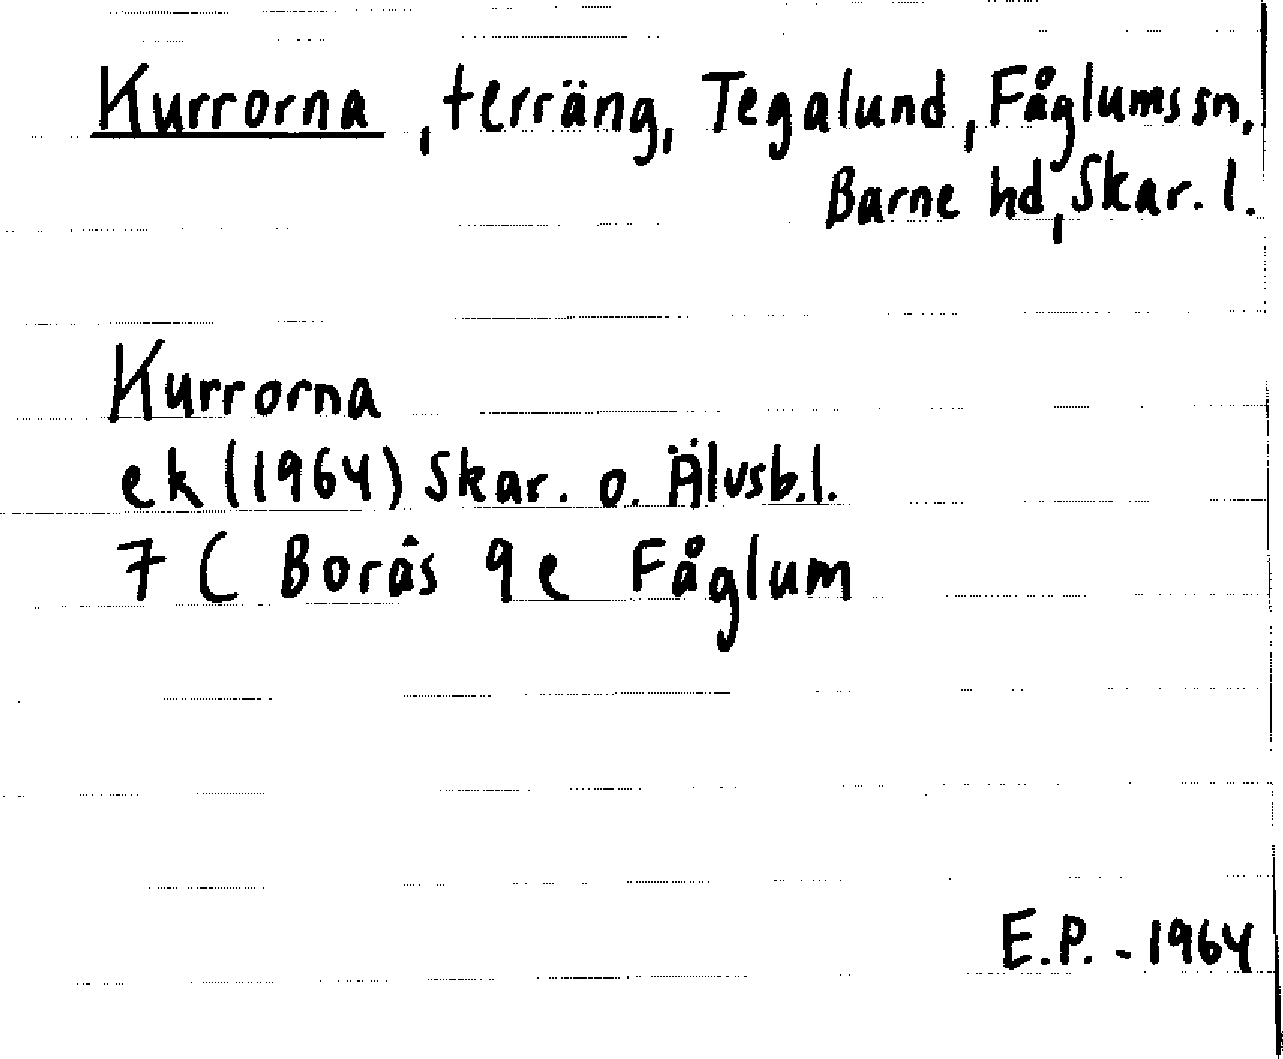 Kurrorna, terräng, Tegalund, Fåglums sn,
Barne hd, Skar. l.
Kurrorna
ek (1964) Skar. o. Älvsb.l.
7 C Borås 9 e Fåglum
E.P. - 1964